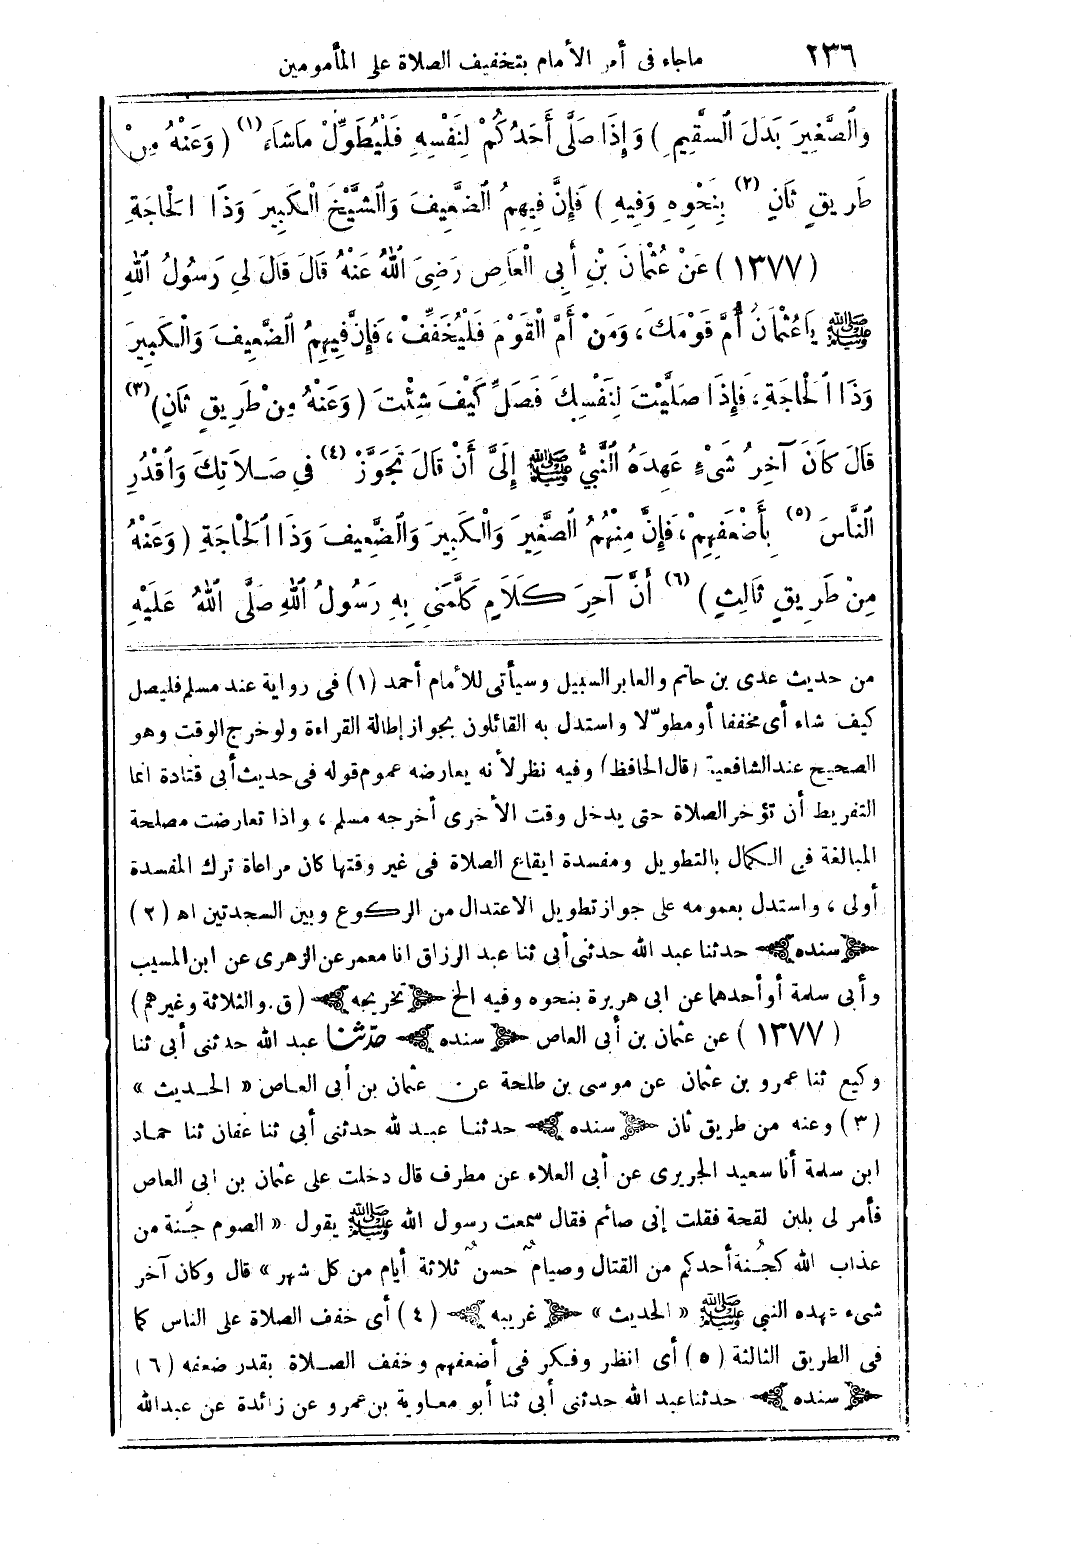 ٢٣٦ ماجاء فى أمر الأمام بتخفيف الصلاة على المأمومين
وَالصَّغِيرَ بَدَلَ السَّقِيمِ ) وَإِذَا صَلَّى أَحَدُكُمْ لِنَفْسِهِ فَلْيُطَوِّلْ مَاشَاءَ (١) ( وَعَنْهُ مِنْ
طَرِيقٍ ثَانٍ (٢) بِنَحْوِهِ وَفِيهِ ) فَإِنَّ فِيهِمُ الضَّعِيفَ وَالشَّيْخَ الْكَبِيرَ وَذَا الْحَاجَةِ
(١٣٧٧) عَنْ عُثْمَانَ بْنِ أَبِى الْعَاصِ رَضِىَ اللهُ عَنْهُ قَالَ قَالَ لِى رَسُولُ اللهِ
ﷺ يَاعُثْمَانُ أُمَّ قَوْمَكَ، وَمَنْ أَمَّ الْقَوْمَ فَلْيُخَفِّفْ، فَإِنَّ فِيهِمُ الضَّعِيفَ وَالْكَبِيرَ
وَذَا الْحَاجَةِ، فَإِذَا صَلَّيْتَ لِنَفْسِكَ فَصَلِّ كَيْفَ شِئْتَ ( وَعَنْهُ مِنْ طَرِيقٍ ثَانٍ)(٣)
قَالَ كَانَ آخِرُ شَىْءٍ عَهِدَهُ النَّبِىُّ ﷺ إِلَىَّ أَنْ قَالَ تَجَوَّزْ (٤) فِى صَلاَتِكَ وَاقْدُرِ
النَّاسَ (٥) بِأَضْعَفِهِمْ، فَإِنَّ مِنْهُمُ الصَّغِيرَ وَالْكَبِيرَ وَالضَّعِيفَ وَذَا الْحَاجَةِ ( وَعَنْهُ
مِنْ طَرِيقٍ ثَالِثٍ ) (٦) أَنَّ آخِرَ كَلَامٍ كَلَّمَنِى بِهِ رَسُولُ اللهِ صَلَّى اللهُ عَلَيْهِ
من حديث عدى بن حاتم والعابر السبيل وسيأتى للأمام أحمد (١) فى رواية عند مسلم فليصل
كيف شاء أى مخففا أو مطوّلا واستدل به القائلون بجواز إطالة القراءة ولو خرج الوقت وهو
الصحيح عند الشافعية (قال الحافظ) وفيه نظر لأنه يعارضه عموم قوله فى حديث أبى قتادة انما
التفريط أن تؤخر الصلاة حتى يدخل وقت الأخرى أخرجه مسلم ، واذا تعارضت مصلحة
المبالغة فى الكمال بالتطويل ومفسدة ايقاع الصلاة فى غير وقتها كان مراعاة ترك المفسدة
أولى ، واستدل بعمومه على جواز تطويل الاعتدال من الركوع وبين السجدتين اه (٢)
﴿سنده﴾ حدثنا عبد الله حدثنى أبى ثنا عبد الرزاق انا معمر عن الزهرى عن ابن المسيب
وأبى سلمة أو أحدهما عن ابى هريرة بنحوه وفيه الخ ﴿تخريجه﴾ (ق. والثلاثة وغيرهم)
(١٣٧٧) عن عثمان بن أبى العاص ﴿سنده﴾ حدّثنا عبد الله حدثنى أبى ثنا
وكيع ثنا عمرو بن عثمان عن موسى بن طلحة عن عثمان بن أبى العاص « الحديث »
(٣) وعنه من طريق ثان ﴿سنده﴾ حدثنا عبد لله حدثنى أبى ثنا عفان ثنا حماد
ابن سلمة أنا سعيد الجريرى عن أبى العلاء عن مطرف قال دخلت على عثمان بن ابى العاص
فأمر لى بلبن لقحة فقلت إنى صائم فقال سمعت رسول الله ﷺ يقول « الصوم جُنة من
عذاب الله كجُنة أحدكم من القتال وصيامٌ حسنٌ ثلاثة أيام من كل شهر » قال وكان آخر
شىء عهده النبى ﷺ « الحديث » ﴿غريبه﴾ (٤) أى خفف الصلاة على الناس كما
فى الطريق الثالثة (٥) أى انظر وفكر فى أضعفهم وخفف الصلاة بقدر ضعفه (٦)
﴿سنده﴾ حدثنا عبد الله حدثنى أبى ثنا أبو معاوية بن عمرو عن زائدة عن عبدالله